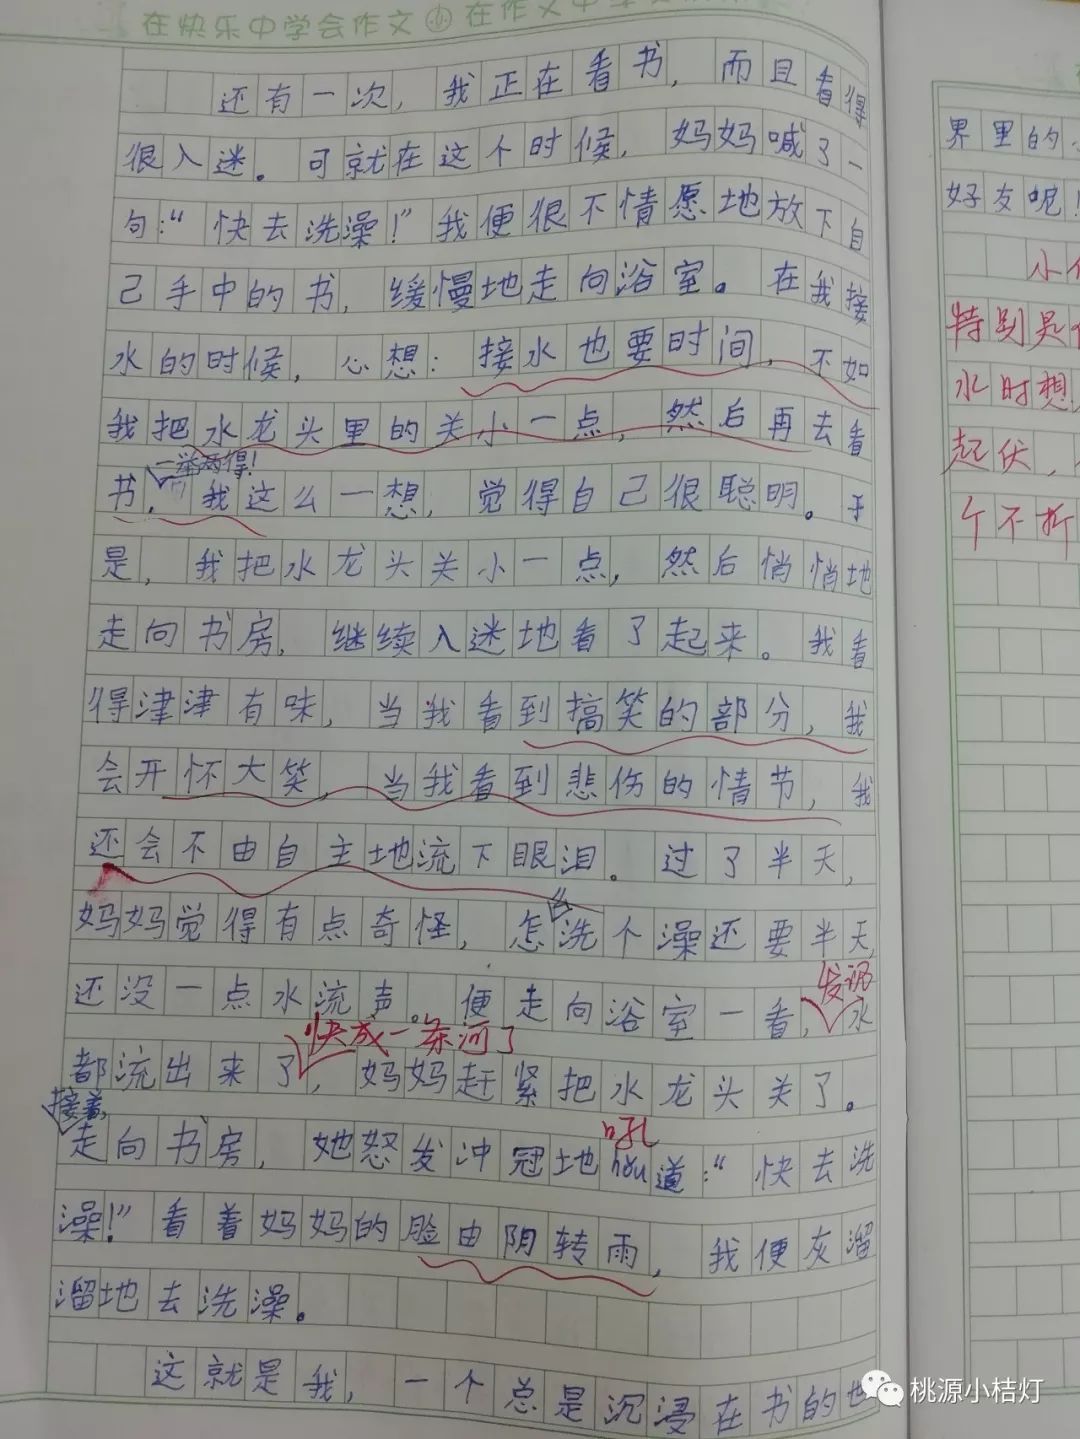 在快乐中学会作文 小 在作文中学
还有一次，我正在看书，而且看得
很入迷。可就在这个时候，妈妈喊了一
句：“快去洗澡！”我便很不情愿地放下自
己手中的书，缓慢地走向浴室。在我接
水的时候，心想：接水也要时间，不如
我把水龙头里的关小一点，然后再去看
一举两得！
书，我这么一想，觉得自己很聪明。于
是，我把水龙头关小一点，然后悄悄地
走向书房，继续入迷地看了起来。我看
得津津有味，当我看到搞笑的部分，我
会开怀大笑，当我看到悲伤的情节，我
还会不由自主地流下眼泪。过了半天，
么
妈妈觉得有点奇怪，怎洗个澡还要半天，
还没一点水流声。便走向浴室一看，水
发现
快成一条河了
都流出来了，妈妈赶紧把水龙头关了。
接着，
走向书房，她怒发冲冠地hǒu道：“快去洗
吼
澡！”看着妈妈的脸由阴转雨，我便灰溜
溜地去洗澡。
这就是我，一个总是沉浸在书的世
界里的
好友呢！
特别是
水时想
起伏，
个不折
桃源小桔灯